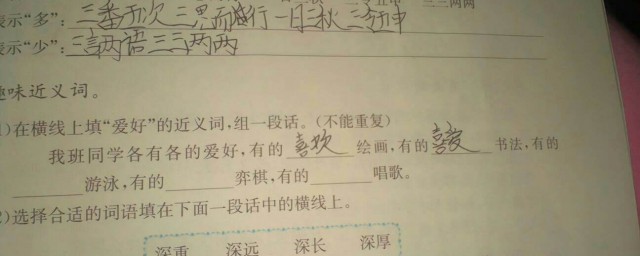 表示“多”：三番五次 三思而后行 一日三秋 三令五申
三三两两
表示“少”：三言两语 三三两两
趣味近义词。
1)在横线上填“爱好”的近义词,组一段话。(不能重复)
我班同学各有各的爱好,有的 喜欢 绘画,有的 喜爱 书法,有的
游泳,有的 弈棋,有的 唱歌。
2)选择合适的词语填在下面一段话中的横线上。
深重 深远 深长 深厚